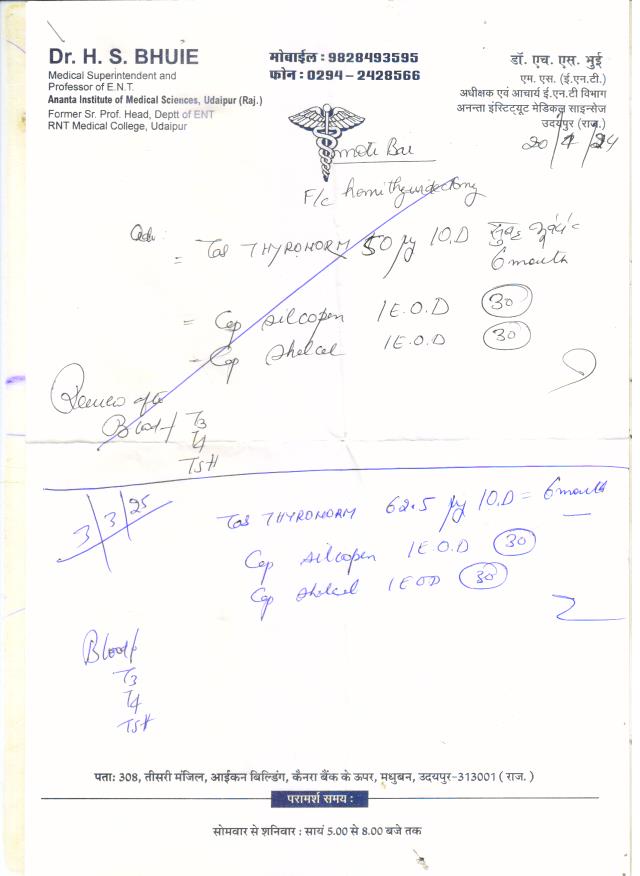 Dr. H. S. BHUIE
Medical Superintendent and
Professor of E.N.T.
Ananta Institute of Medical Sciences, Udaipur (Raj.)
Former Sr. Prof. Head, Deptt of ENT
RNT Medical College, Udaipur
मोबाईल : 9828493595
फोन : 0294 – 2428566
डॉ. एच. एस. भुई
एम. एस. (ई.एन.टी.)
अधीक्षक एवं आचार्य ई.एन.टी विभाग
अनन्ता इंस्टिट्यूट मेडिकल साइन्सेज
उदयपुर (राज.)
Moti Bai
F/c hemithyroidectomy
Tab THYRONORM 50 µg 1O.D सुबह
6 month
= Cap silcopen 1E.O.D 30
= Cap shelcal 1E.O.D 30
Review after
Blood/ T3
T4
TSH
3/3/25
Tab THYRONORM 62.5 µg 1O.D = 6 month
Cap silcopen 1E.O.D 30
Cap shelcal 1EOD 30
Blood/
T3
T4
TSH
पता: 308, तीसरी मंजिल, आईकन बिल्डिंग, कैनरा बैंक के ऊपर, मधुबन, उदयपुर-313001 ( राज. )
परामर्श समय :
सोमवार से शनिवार : सायं 5.00 से 8.00 बजे तक